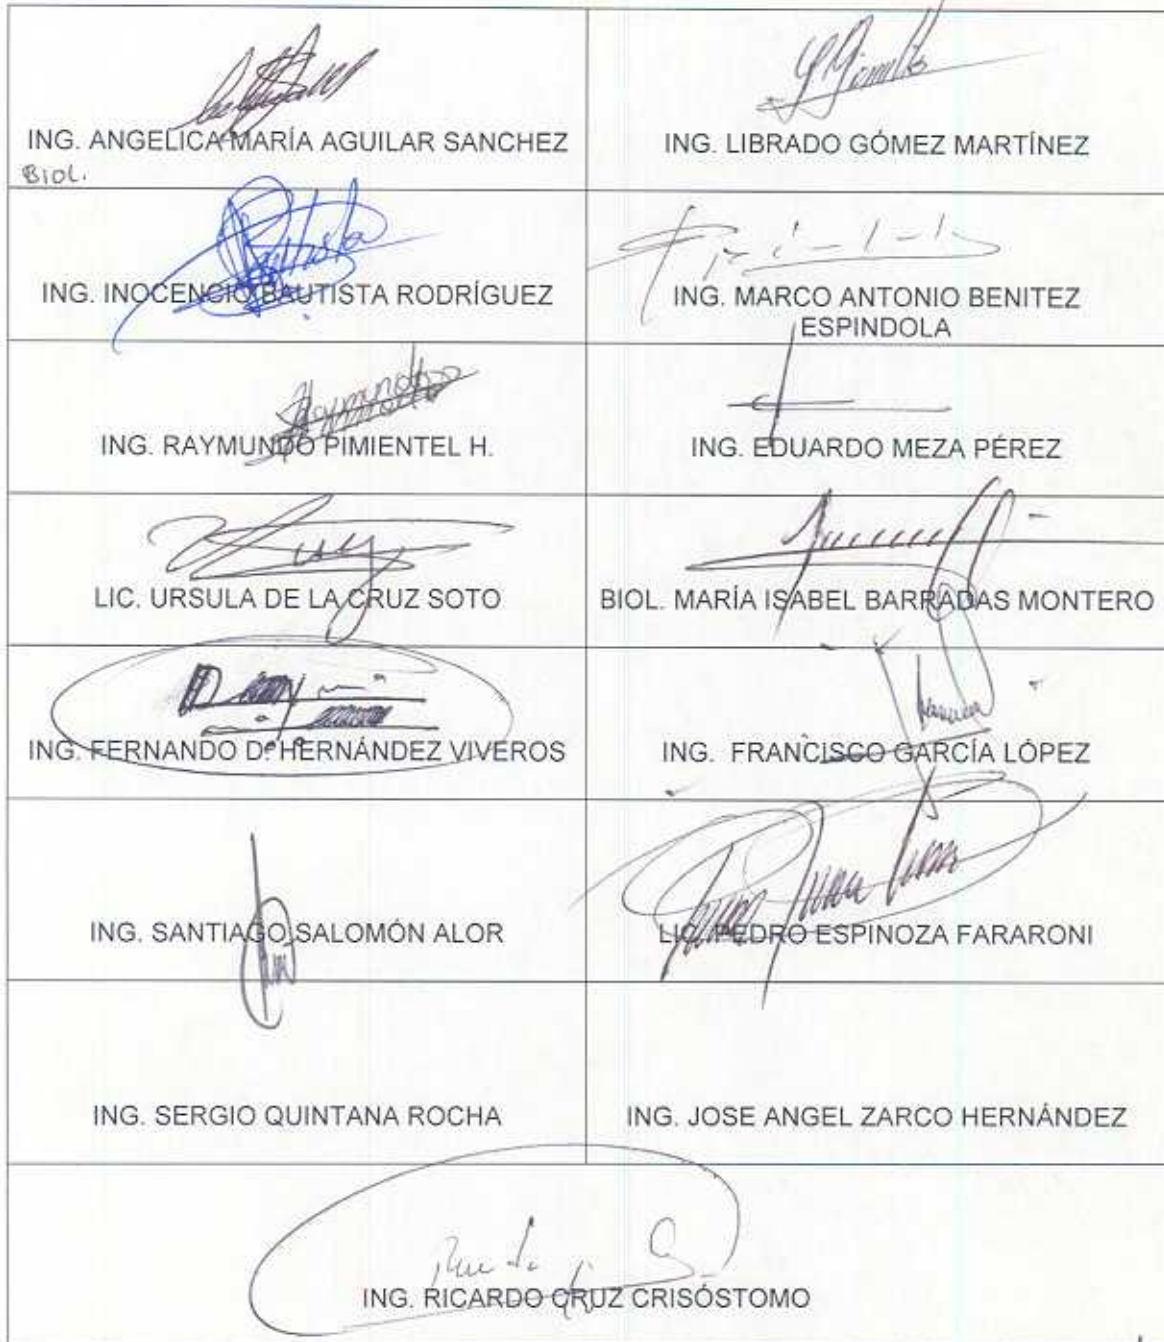 ING. ANGELICA MARÍA AGUILAR SANCHEZ
BIOL.
ING. LIBRADO GÓMEZ MARTÍNEZ
ING. INOCENCIO BAUTISTA RODRÍGUEZ
ING. MARCO ANTONIO BENITEZ
ESPINDOLA
ING. RAYMUNDO PIMIENTEL H.
ING. EDUARDO MEZA PÉREZ
LIC. URSULA DE LA CRUZ SOTO
BIOL. MARÍA ISABEL BARRADAS MONTERO
ING. FERNANDO D. HERNÁNDEZ VIVEROS
ING. FRANCISCO GARCÍA LÓPEZ
ING. SANTIAGO SALOMÓN ALOR
LIC. PEDRO ESPINOZA FARARONI
ING. SERGIO QUINTANA ROCHA
ING. JOSE ANGEL ZARCO HERNÁNDEZ
ING. RICARDO CRUZ CRISÓSTOMO